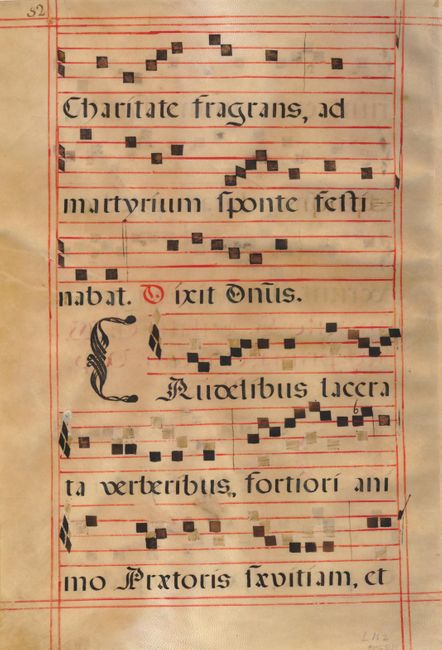 52
Charitate fragrans, ad
martyrium sponte festi
nabat. D ixit Dn̄us.
CRudelibus lacera
ta verberibus, fortiori ani
mo Prætoris sævitiam, et